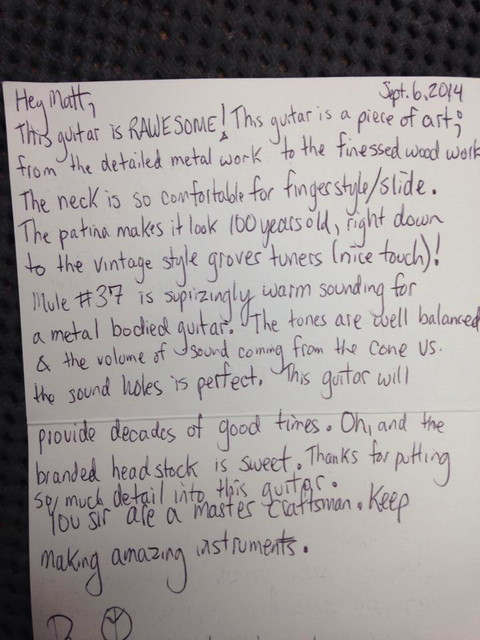 Hey Matt,
Sept. 6, 2014
This guitar is RAWESOME! This guitar is a piece of art;
from the detailed metal work to the finessed wood work
The neck is so comfortable for fingerstyle/slide.
The patina makes it look 100 years old, right down
to the vintage style grovers tuners (nice touch)!
Mule #37 is suprizingly warm sounding for
a metal bodied guitar. The tones are well balanced
& the volume of sound coming from the cone vs.
the sound holes is perfect. This guitar will
provide decades of good times. Oh, and the
branded headstock is sweet. Thanks for putting
so much detail into this guitar.
You sir are a master craftsman. Keep
making amazing instruments.